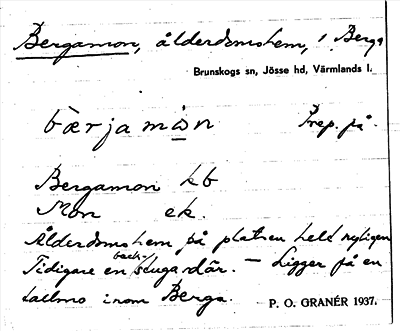 Bergamon, ålderdomshem, i Berga
Brunskogs sn, Jösse hd, Värmlands l.
bærjamòn Prep. på.
Bergamon kb
Mon ek.
Ålderdomshem på platsen helt nyligen
Tidigare en back-stuga där. – Ligger på en
tallmo inom Berga.
P. O. GRANÉR 1937.